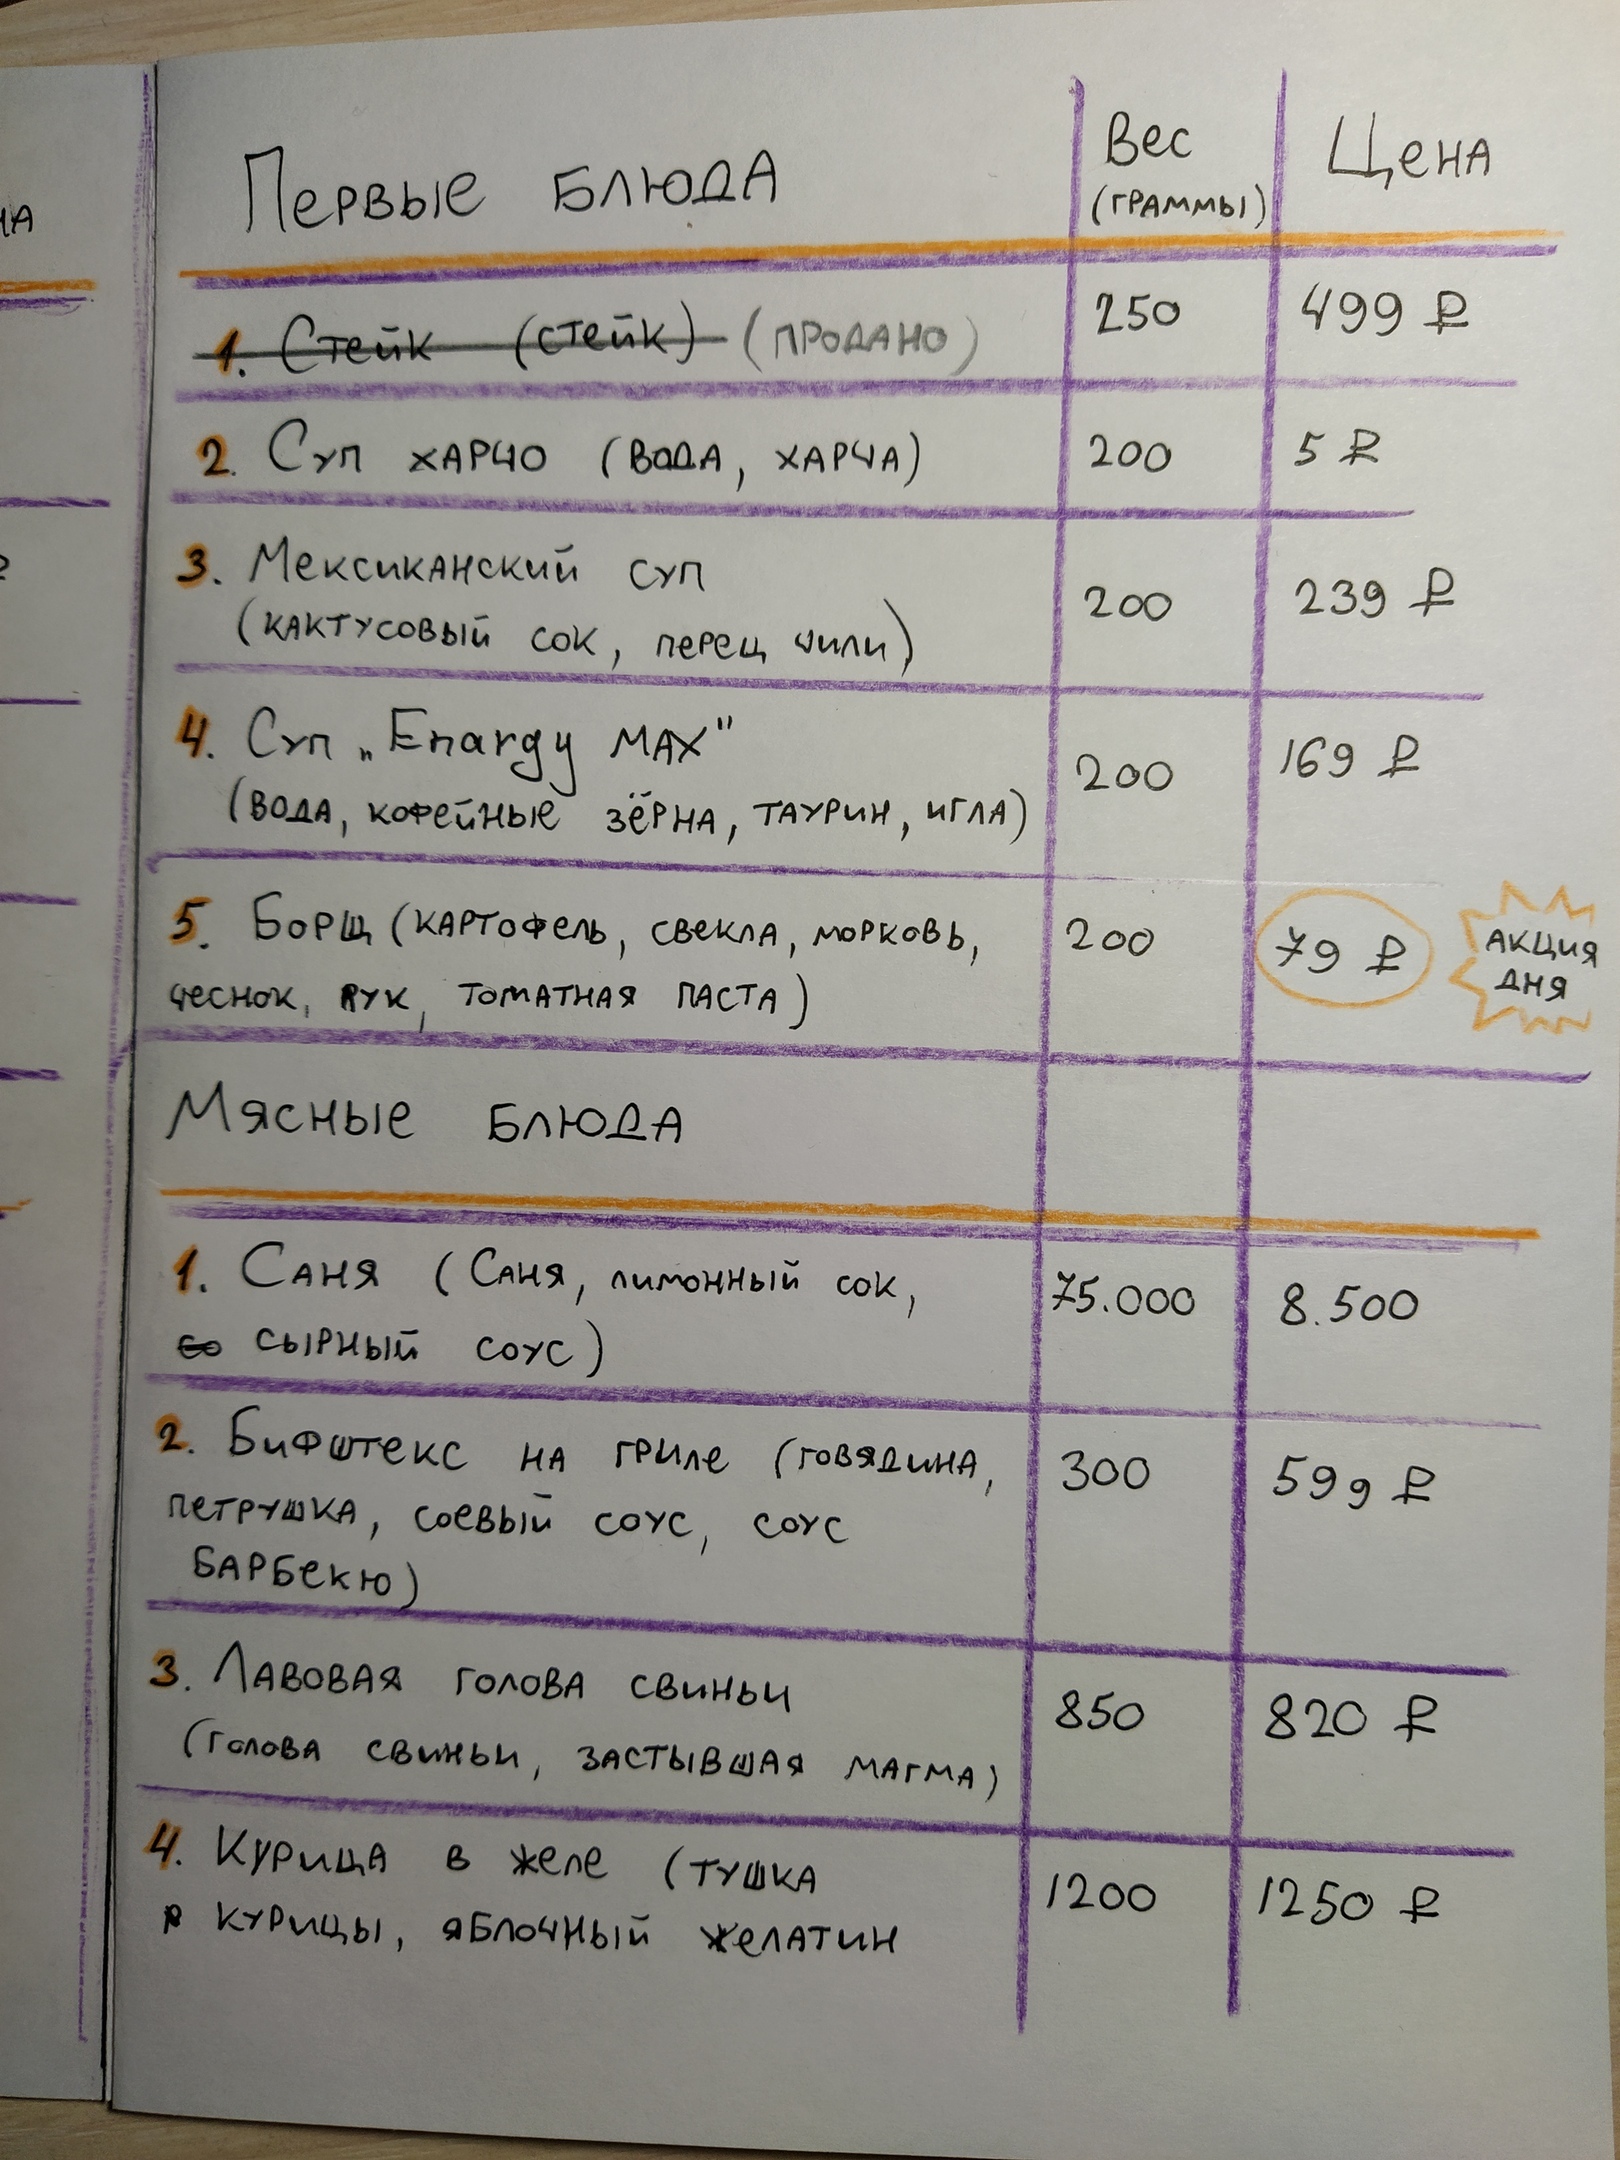 НА
Первые блюда
Вес
(граммы)
Цена
1. Стейк (стейк) (продано) 250 499 ₽
2. Суп харчо (вода, харча) 200 5 ₽
3. Мексиканский суп
(кактусовый сок, перец чили) 200 239 ₽
4. Суп „Enargy MAX"
(вода, кофейные зёрна, таурин, игла) 200 169 ₽
5. Борщ (картофель, свекла, морковь,
чеснок, лук, томатная паста) 200 79 ₽
Акция
дня
Мясные блюда
1. Саня (Саня, лимонный сок, 75.000 8.500
со сырный соус)
2. Бифштекс на гриле (говядина, 300 599 ₽
петрушка, соевый соус, соус
барбекю)
3. Лавовая голова свиньи 850 820 ₽
(голова свиньи, застывшая магма)
4. Курица в желе (тушка 1200 1250 ₽
курицы, яблочный желатин